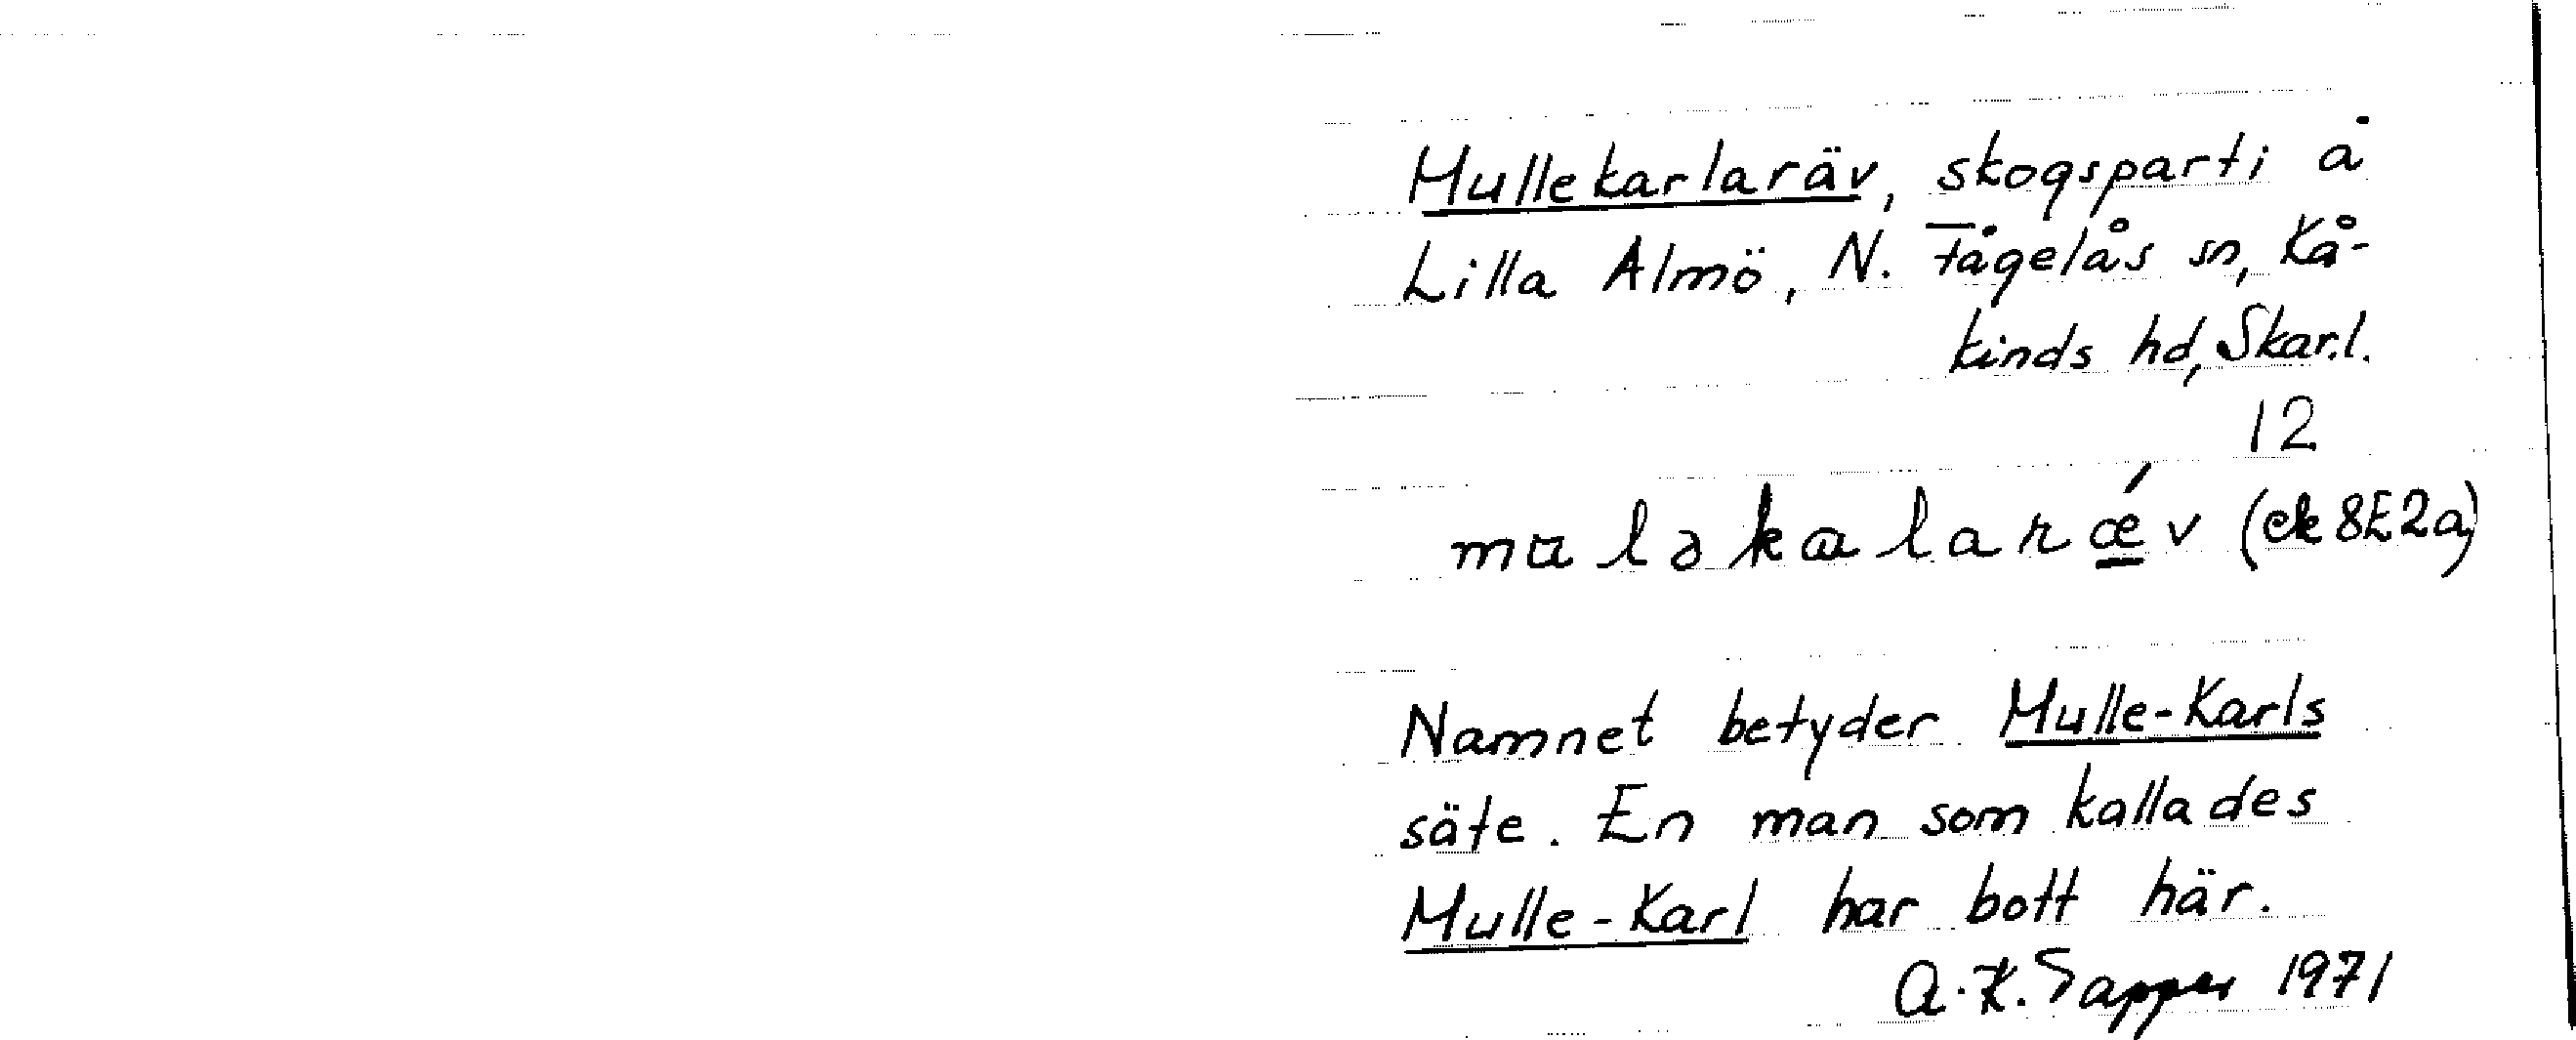 Mullekarlaräv, skogsparti å
Lilla Almö, N. Fågelås sn, Kå-
kinds hd, Skar.l.
12
muləkalarǽv (ek 8E2a)
Namnet betyder Mulle-Karls
säte. En man som kallades
Mulle-Karl har bott här.
A.K. 1971